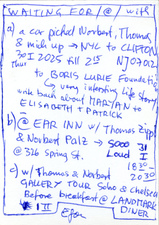 WAITING FOR @/with
a) a car picked Norbert, Thomas
& mick up → NYC to CLIFTON
30 I 2025 till 2⁰⁰ NJ 07012
to BORIS LURIE Foundation
very interesting life story
with back about MARYAN to
ELISABETH + PATRICK
b) @ EAR INN w/ Thomas Zipp
& Norbert Palz → SOHO 31
@ 326 Spring st. Loud I
18³⁰
20³⁰
c) w/ Thomas & Norbert
GALLERY TOUR Soho & Chelsea
Before breakfast @ LANDMARK
1 II DINER